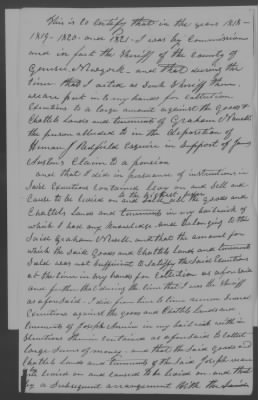 This is to Certify that in the years 1818 -
1819 - 1820 - and 1821 - I was by Commission
and in fact the Sheriff of the County of
Genesee Newyork - and that during the
time that I acted as Such Sheriff there
were put in to my hands for Collection
Executions to a large amount against the goods &
Chattels Lands and tenements of Graham Newell
the person alluded to in the deposition of
Heman J Redfield Esquire in Support of
Claim to a pension
and that I did in pursuance of instructions in
Said Executions Contained Levy on and Sell and
Cause to be Levied on and Sold all the goods and
Chattels Lands and tenements in my bailiwick of
which I had any Knowledge and belonging to the
Said Graham Newell and that the amount for
which the Said Goods and Chattels Lands and tenements
Sold was not Sufficient to Satisfy the Said Executions
at the time in my hands for Collection as aforesaid
and further that during the time that I was the Sheriff
as aforesaid I did from time to time
Executions against the goods and Chattels Lands and
tenements of Joseph in my bailiwick with in
Executions therein contained as aforesaid to collect
large Sums of money - and that the Said Goods and
Chattels Lands and tenements of the Said Joseph were
Levied on and caused to be Levied on and that
by a Subsequent arrangement With the Said